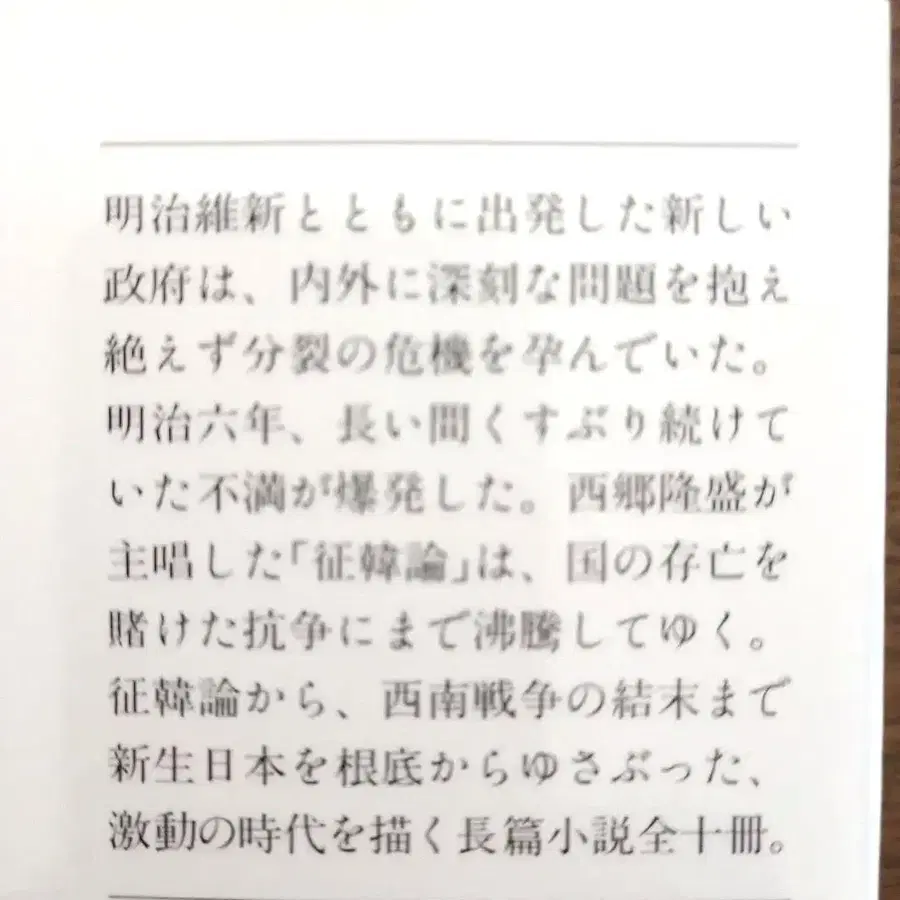 明治維新とともに出発した新しい
政府は、内外に深刻な問題を抱え
絶えず分裂の危機を孕んでいた。
明治六年、長い間くすぶり続けて
いた不満が爆発した。西郷隆盛が
主唱した「征韓論」は、国の存亡を
賭けた抗争にまで沸騰してゆく。
征韓論から、西南戦争の結末まで
新生日本を根底からゆさぶった、
激動の時代を描く長篇小説全十冊。